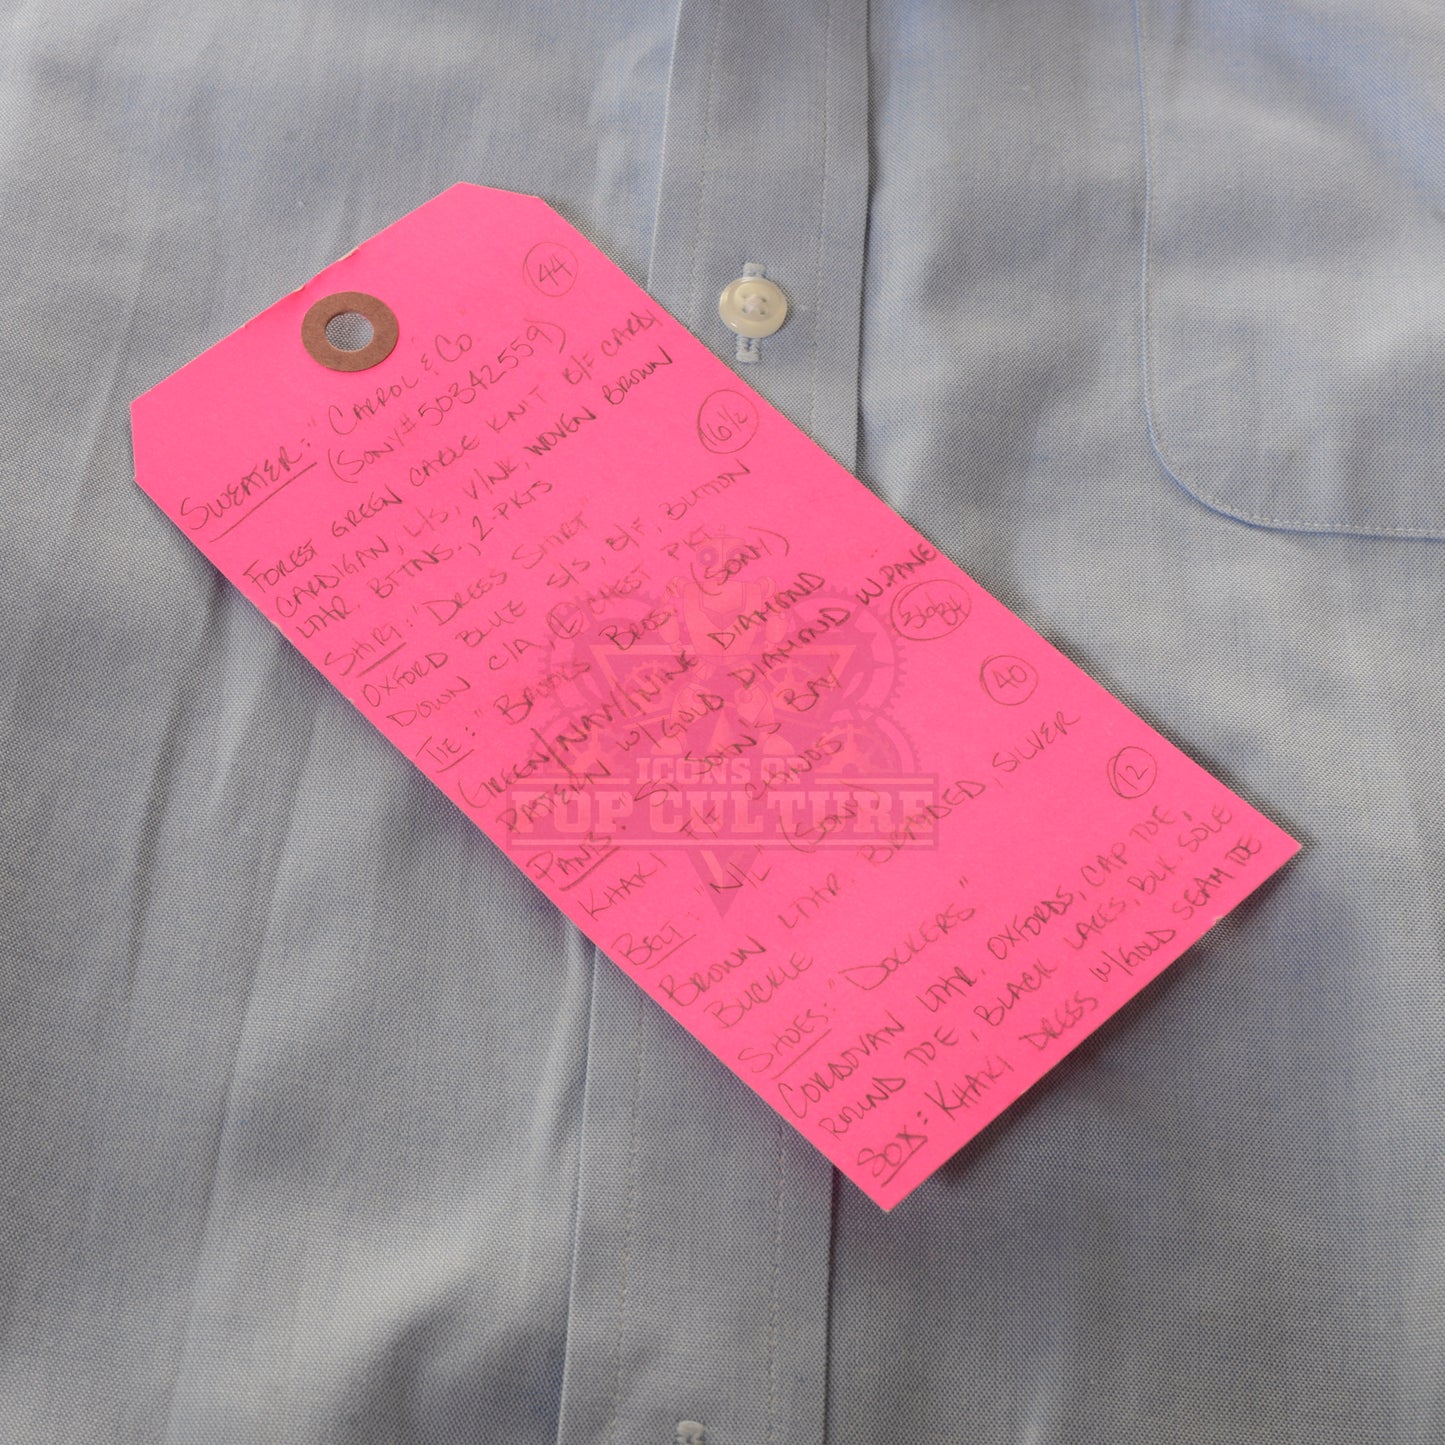 44
SWEATER: "CARROL & CO
(SONY # 50342559)
FOREST GREEN CABLE KNIT B/F CARDI
CARDIGAN, L/S, V/NK, WOVEN BROWN
LTHR. BTTNS., 2-PKTS
16 1/2
SHIRT: "DRESS SHIRT"
OXFORD BLUE S/S, B/F, BUTTON
DOWN C/A (L) CHEST PKT.
TIE: "BROOKS BROS." (SONY)
GREEN/NAVY/WINE DIAMOND
PATTERN W/GOLD DIAMOND W.PANE
PANTS: ST. JOHN'S BAY
KHAKI F/F CHINOS
40
BELT: "N/L" (SONY)
BROWN LTHR. BRAIDED, SILVER
BUCKLE
12
SHOES: "DOCKERS"
CORDOVAN LTHR. OXFORDS, CAP TOE,
ROUND TOE, BLACK LACES, BLK. SOLE
SOX: KHAKI DRESS W/GOLD SEAM TOE
ICONS OF
POP CULTURE